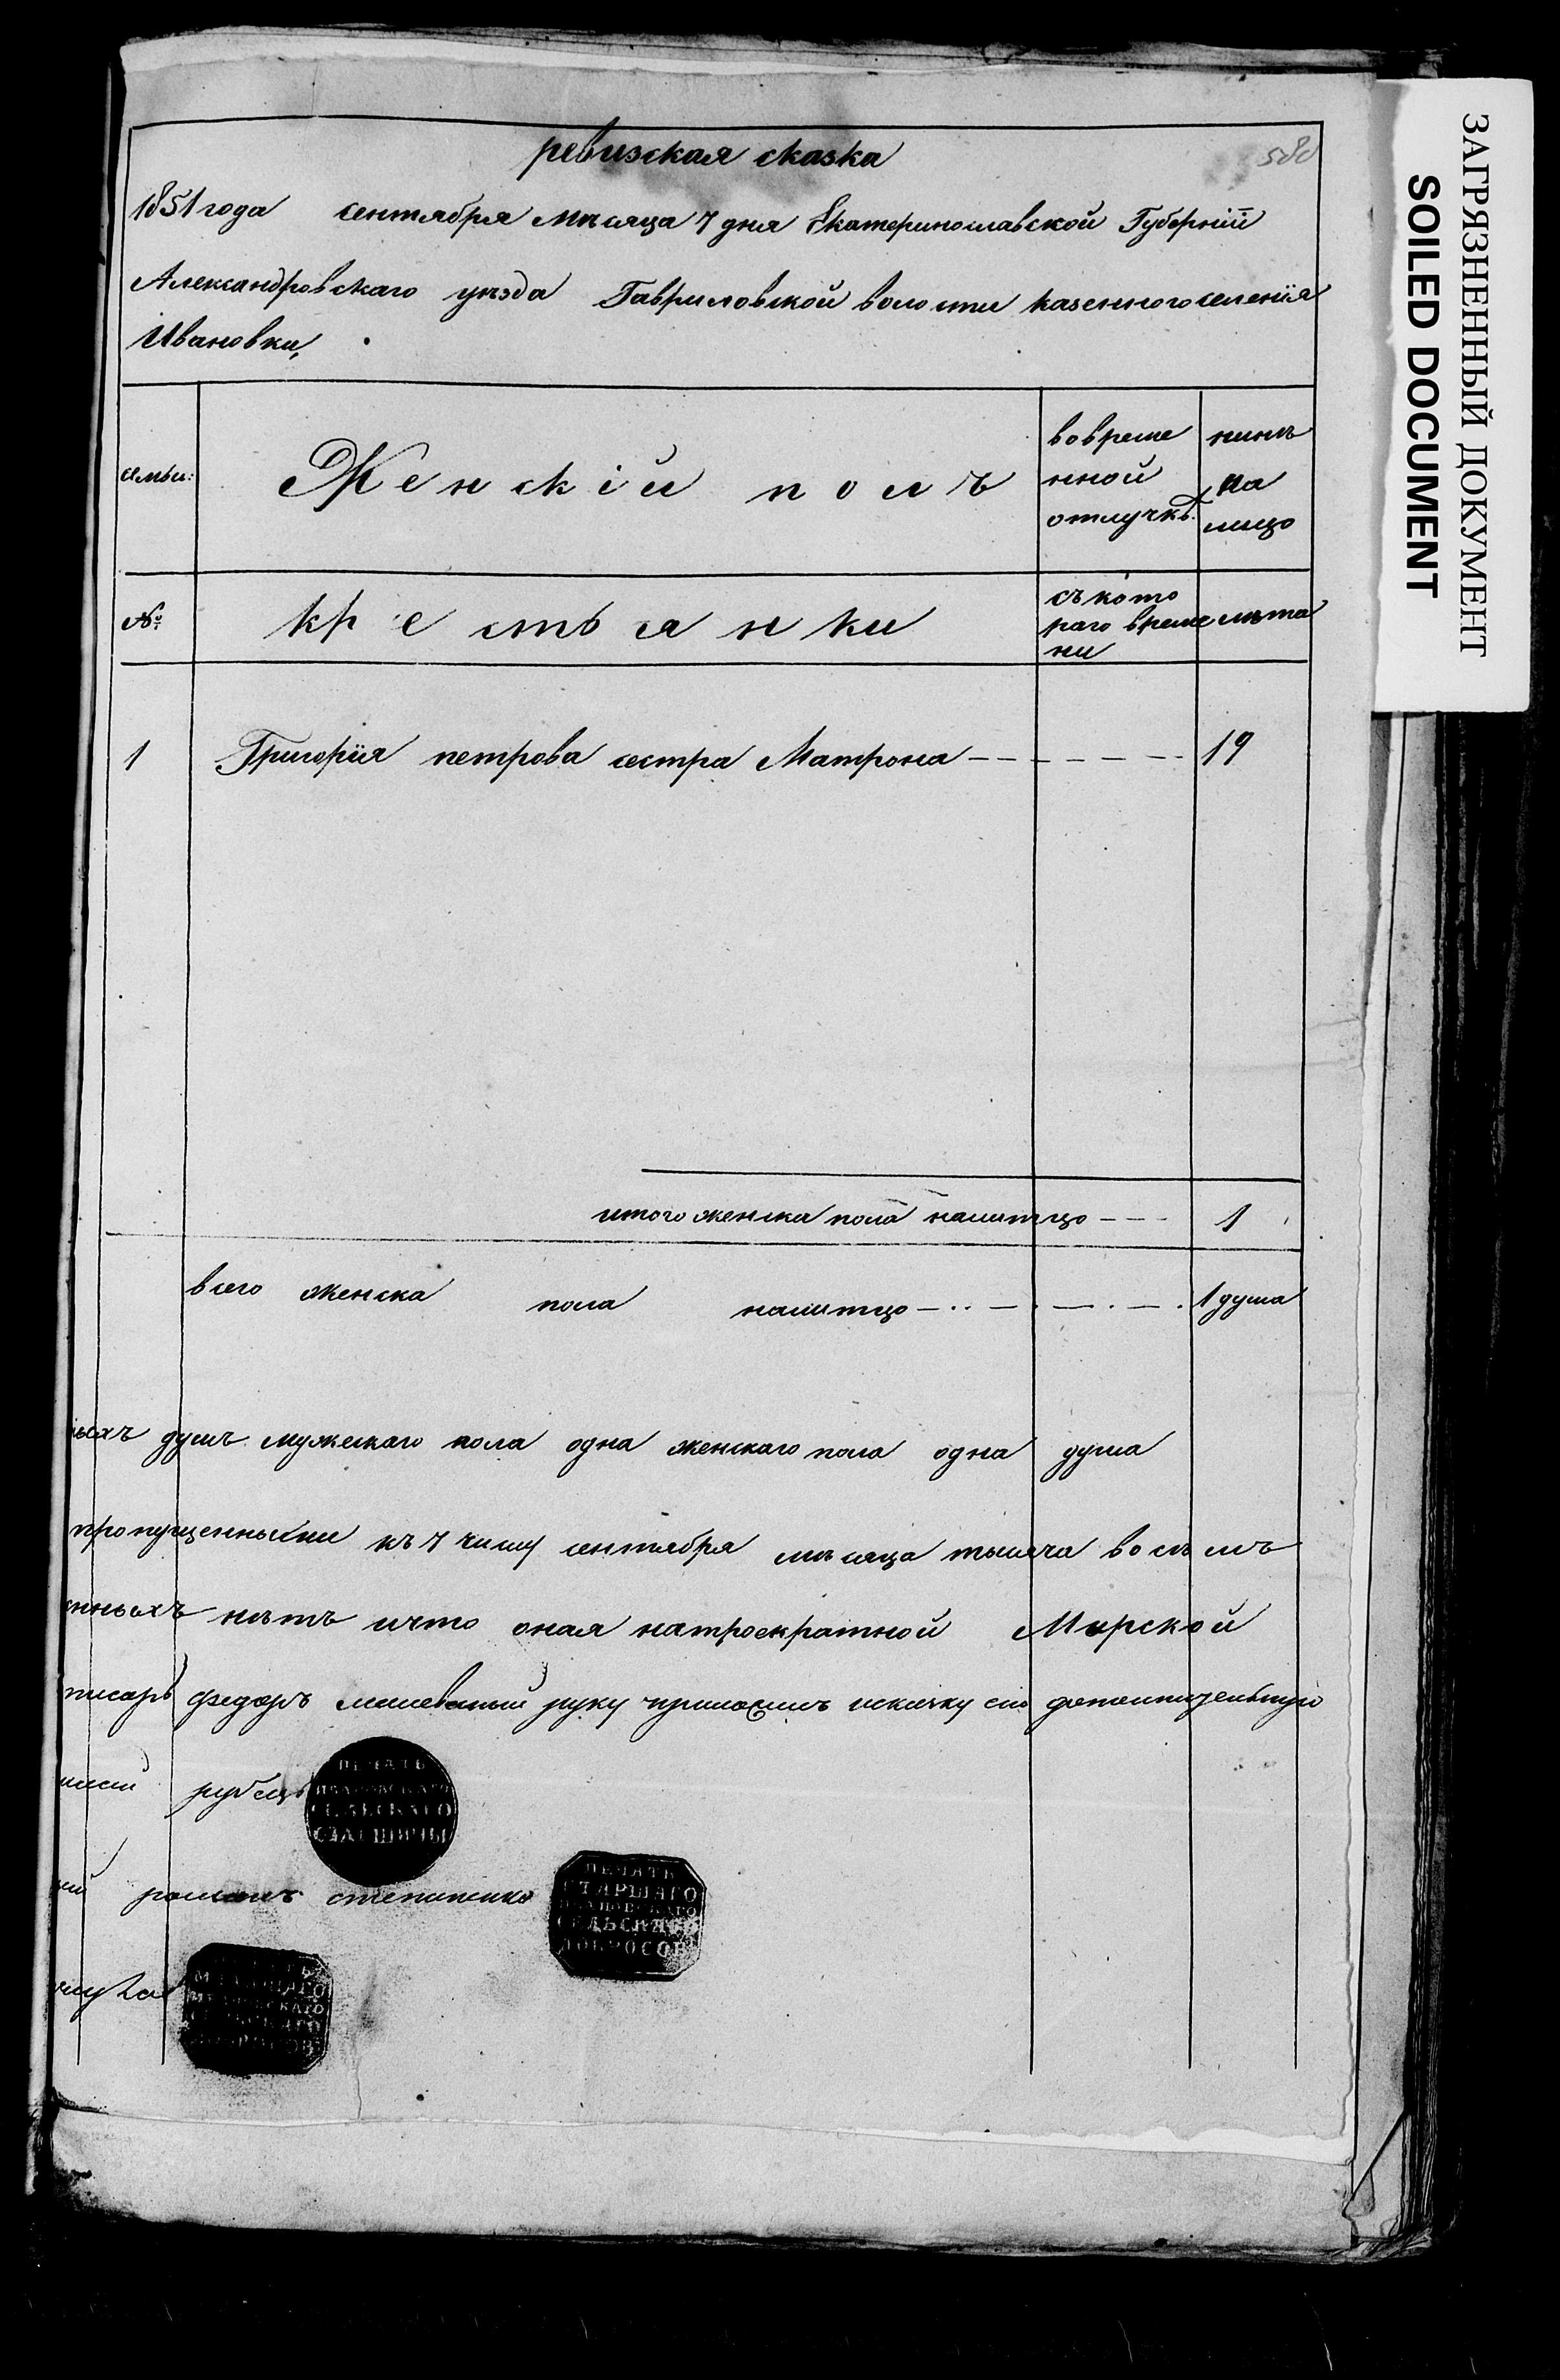 ревизская сказка
580
1851 года сентября мѣсяца 7 дня Екатеринославской Губерніи
Александровскаго уѣзда Гавриловской волости казенного селенія
Ивановки,
семьи:
Женскій полъ
вовреме
нной
отлучкѣ.
нинѣ
на
лицо
№
крестьянки
съ кото
раго време
ни
лѣта
1 Григорія петрова сестра Матрона 19
итого женска пола налитцо 1
всего женска пола налитцо 1 душа
ыхъ душъ мужескаго пола одна женскаго пола одна душа
пропущенными къ 7 числу сентября мѣсяца тысяча восемъ
нныхъ нѣтъ ичто оная натроекратной Мирской
писарь федоръ руку приложилъ
рубецъ
ПЕЧАТЬ
ИВАНОВСКАГО
СЕЛЬСКАГО
СТАРШИНЫ
романъ степаненко
ПЕЧАТЬ
СТАРШАГО
ИВАНОВСКАГО
СЕЛЬСКАГО
ДОБРОСОВ
ЗАГРЯЗНЕННЫЙ ДОКУМЕНТ
SOILED DOCUMENT